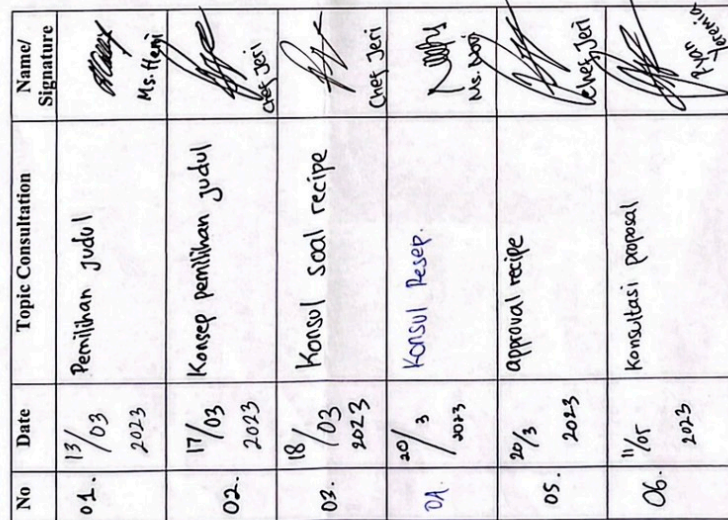 No Date Topic Consultation Name/ Signature
01. 13/03 2023 Pemilihan judul Ms. Heni
02. 17/03 2023 Konsep pemilihan judul Chef Jeri
03. 18/03 2023 Konsul soal recipe Chef Jeri
04. 20/3 2023 Konsul Resep. Ms. Novi
05. 20/3 2023 approval recipe Chef Jeri
06. 11/05 2023 Konsultasi proposal Ryan